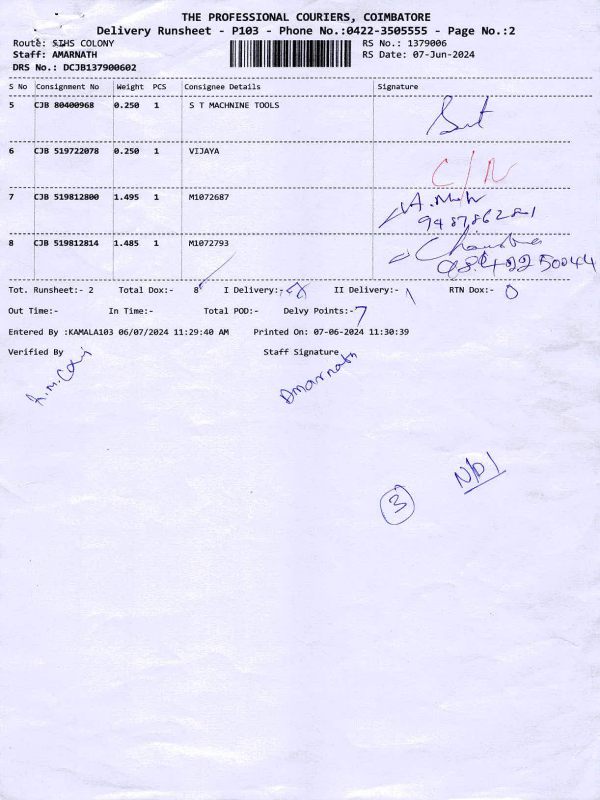 THE PROFESSIONAL COURIERS, COIMBATORE
Delivery Runsheet - P103 - Phone No.:0422-3505555 - Page No.:2
Route: SIHS COLONY RS No.: 1379006
Staff: AMARNATH RS Date: 07-Jun-2024
DRS No.: DCJB137900602
S No Consignment No Weight PCS Consignee Details Signature
5 CJB 80400968 0.250 1 S T MACHNINE TOOLS
6 CJB 519722078 0.250 1 VIJAYA C/N
7 CJB 519812800 1.495 1 M1072687
8 CJB 519812814 1.485 1 M1072793
Tot. Runsheet:- 2 Total Dox:- 8 I Delivery:- II Delivery:- 1 RTN Dox:- 0
Out Time:- In Time:- Total POD:- Delvy Points:- 7
Entered By :KAMALA103 06/07/2024 11:29:40 AM Printed On: 07-06-2024 11:30:39
Verified By Staff Signature
Amarnath
N/D1
3